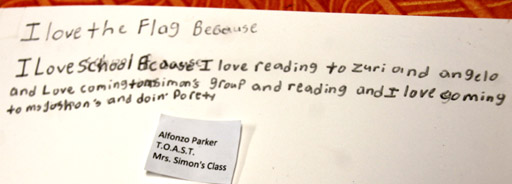 I love the Flag Because
I Love school Because I love reading to Zuri and angelo
and Love coming to msimon's group and reading and I love going
to ms Joshon's and doin' Porety
Alfonzo Parker
T.O.A.S.T.
Mrs. Simon's Class